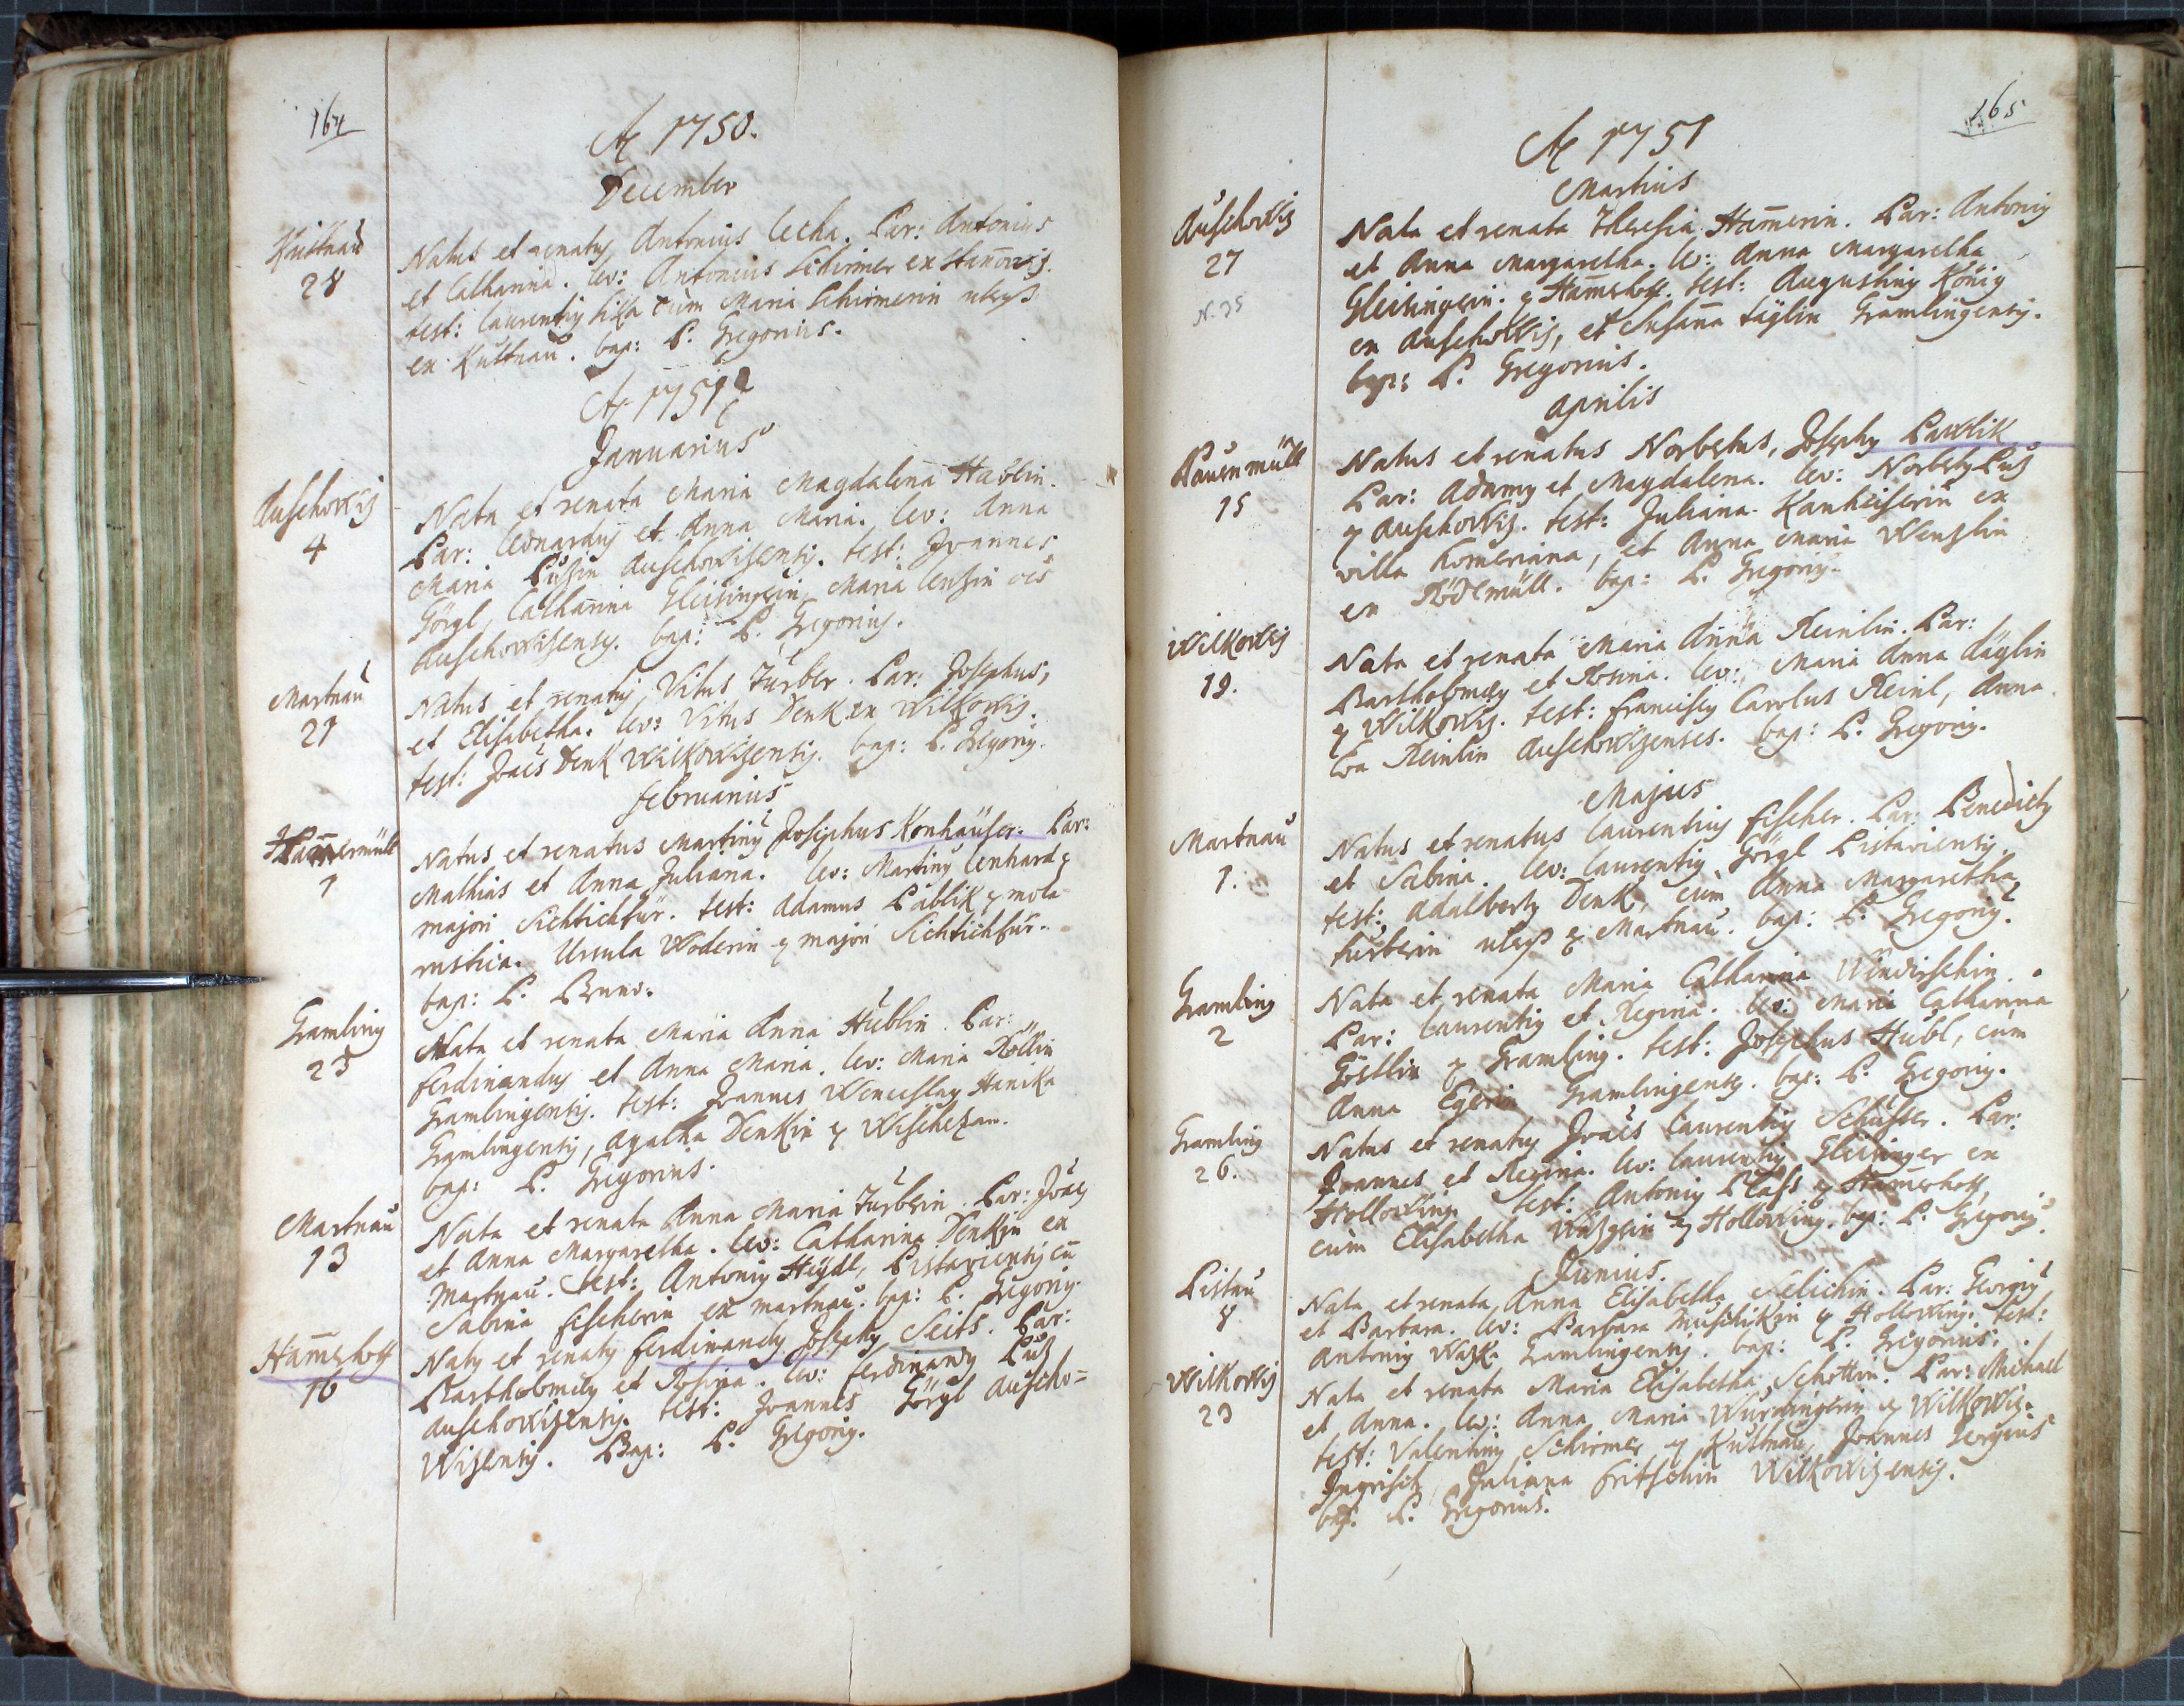 164
A 1750.
December
Kuttnau
28
Natus et renatus Antonius Lecha. Par: Antonius
et Catharina. lev: Antonius Schirmer ex
test: Laurentius cum Maria Schirmerin
ex Kuttnau. bap: P. Gregorius.
A 1751
Januarius
Auschowitz
4
Nata et renata Maria Magdalena
Par: Leonardus et Anna Maria. lev: Anna
Maria Auschowizensis. test: Joannes
Görgl, Catharina Gleisingerin, Maria
Auschowizenses. bap: P. Gregorius.
Martnau
27
Natus et renatus Vitus Türber. Par: Josephus,
et Elisabetha. lev: Vitus Denk ex Wilkowiz.
test: Joães Denk Wilkowizensis. bap: P. Gregorius.
Februarius
1
Natus et renatus Martinus Josephus Konhäuser. Par:
Mathias et Anna Juliana. lev: Martinus Lenhard ex
majori Sichtichfür. test: Adamus Pablik ex mola
rustica. Ursula Woderin ex majori Sichtichfür.
bap: P. Bruno.
Gramling
23
Nata et renata Maria Anna Hüblin. Par:
Ferdinandus et Anna Maria. lev: Maria
Gramlingensis. test: Joannes Wenceslaus Hanika
Gramlingensis, Agatha Denkin ex
bap: P. Gregorius.
Martnau
13
Nata et renata Anna Maria Türberin. Par: Joães
et Anna Margaretha. lev: Catharina Denkin ex
Martnau. test: Antonius Heÿdl, Pistaviensis cũ
Sabina Fischerin ex Martnau. bap: P. Gregorius.
Ham̃erhoff
16
Natus et renatus Ferdinandus Josephus Seits. Par:
Bartholomæus et Rosina. lev: Ferdinandus
Auschowizensis. test: Joannes Görgl Auscho=
wizensis. Bap: P. Gregorius.
165
A 1751
Martius
Auschowiz
27
N. 35
Nata et renata Theresia Ham̃erin. Par: Antonius
et Anna Margaretha. lev: Anna Margaretha
Gleisingerin ex Ham̃erhoff. test: Augustinus König
ex Auschowiz, et Susan̄a Gramlingensis.
bap: P. Gregorius.
Aprilis
Pauenmüll
15
Natus et renatus Norbertus, Josephus Pawlik
Par: Adamus et Magdalena. lev: Norbertus
ex Auschowiz. test: Juliana Kanheiserin ex
villa, et Anna Maria Wenzlin
ex. bap: P. Gregorius.
Wilkowiz
19.
Nata et renata Maria Anna Reinlin. Par:
Bartholomæus et Rosina. lev: Maria Anna
ex Wilkowiz. test: Franciscus Carolus Reinl, Anna
Eva Reinlin Auschowizenses. bap: P. Gregorius.
Majus
Martnau
1.
Natus et renatus Laurentius Fischer. Par: Benedictus
et Sabina. lev: Laurentius Görgl Pistaviensis.
test: Adalbertus Denk, cum Anna Margaretha
Türberin ex Martnau. bap: P. Gregorius.
Gramling
2
Nata et renata Maria Catharina Windirschin.
Par: Laurentius et Regina. lev: Maria Catharina
Göstlin ex Gramling. test: Josephus Hübl, cum
Anna Egerin Gramlingenses. bap: P. Gregorius.
Gramling
26.
Natus et renatus Joães Laurentius Schäffer. Par:
Joannes et Regina. lev: Laurentius Gleisinger ex
Hollowing. test: Antonius Plass ex Ham̃erhoff,
cum Elisabetha ex Hollowing. bap: P. Gregorius.
Junius.
Pistau
8
Nata et renata Anna Elisabetha Selichin. Par: Georgius
et Barbara. lev: Barbara Muschikin ex Hollowing. test:
Antonius Gramlingensis. bap: P. Gregorius.
Wilkowiz
23
Nata et renata Maria Elisabetha Schottin. Par: Michael
et Anna. lev: Anna Maria Würdingerin ex Wilkowiz.
test: Valentinus Schirmer ex Kuttnau, Joannes Georgius
Ingrisch, Juliana Fritschin Wilkowizensis.
bap. P. Gregorius.